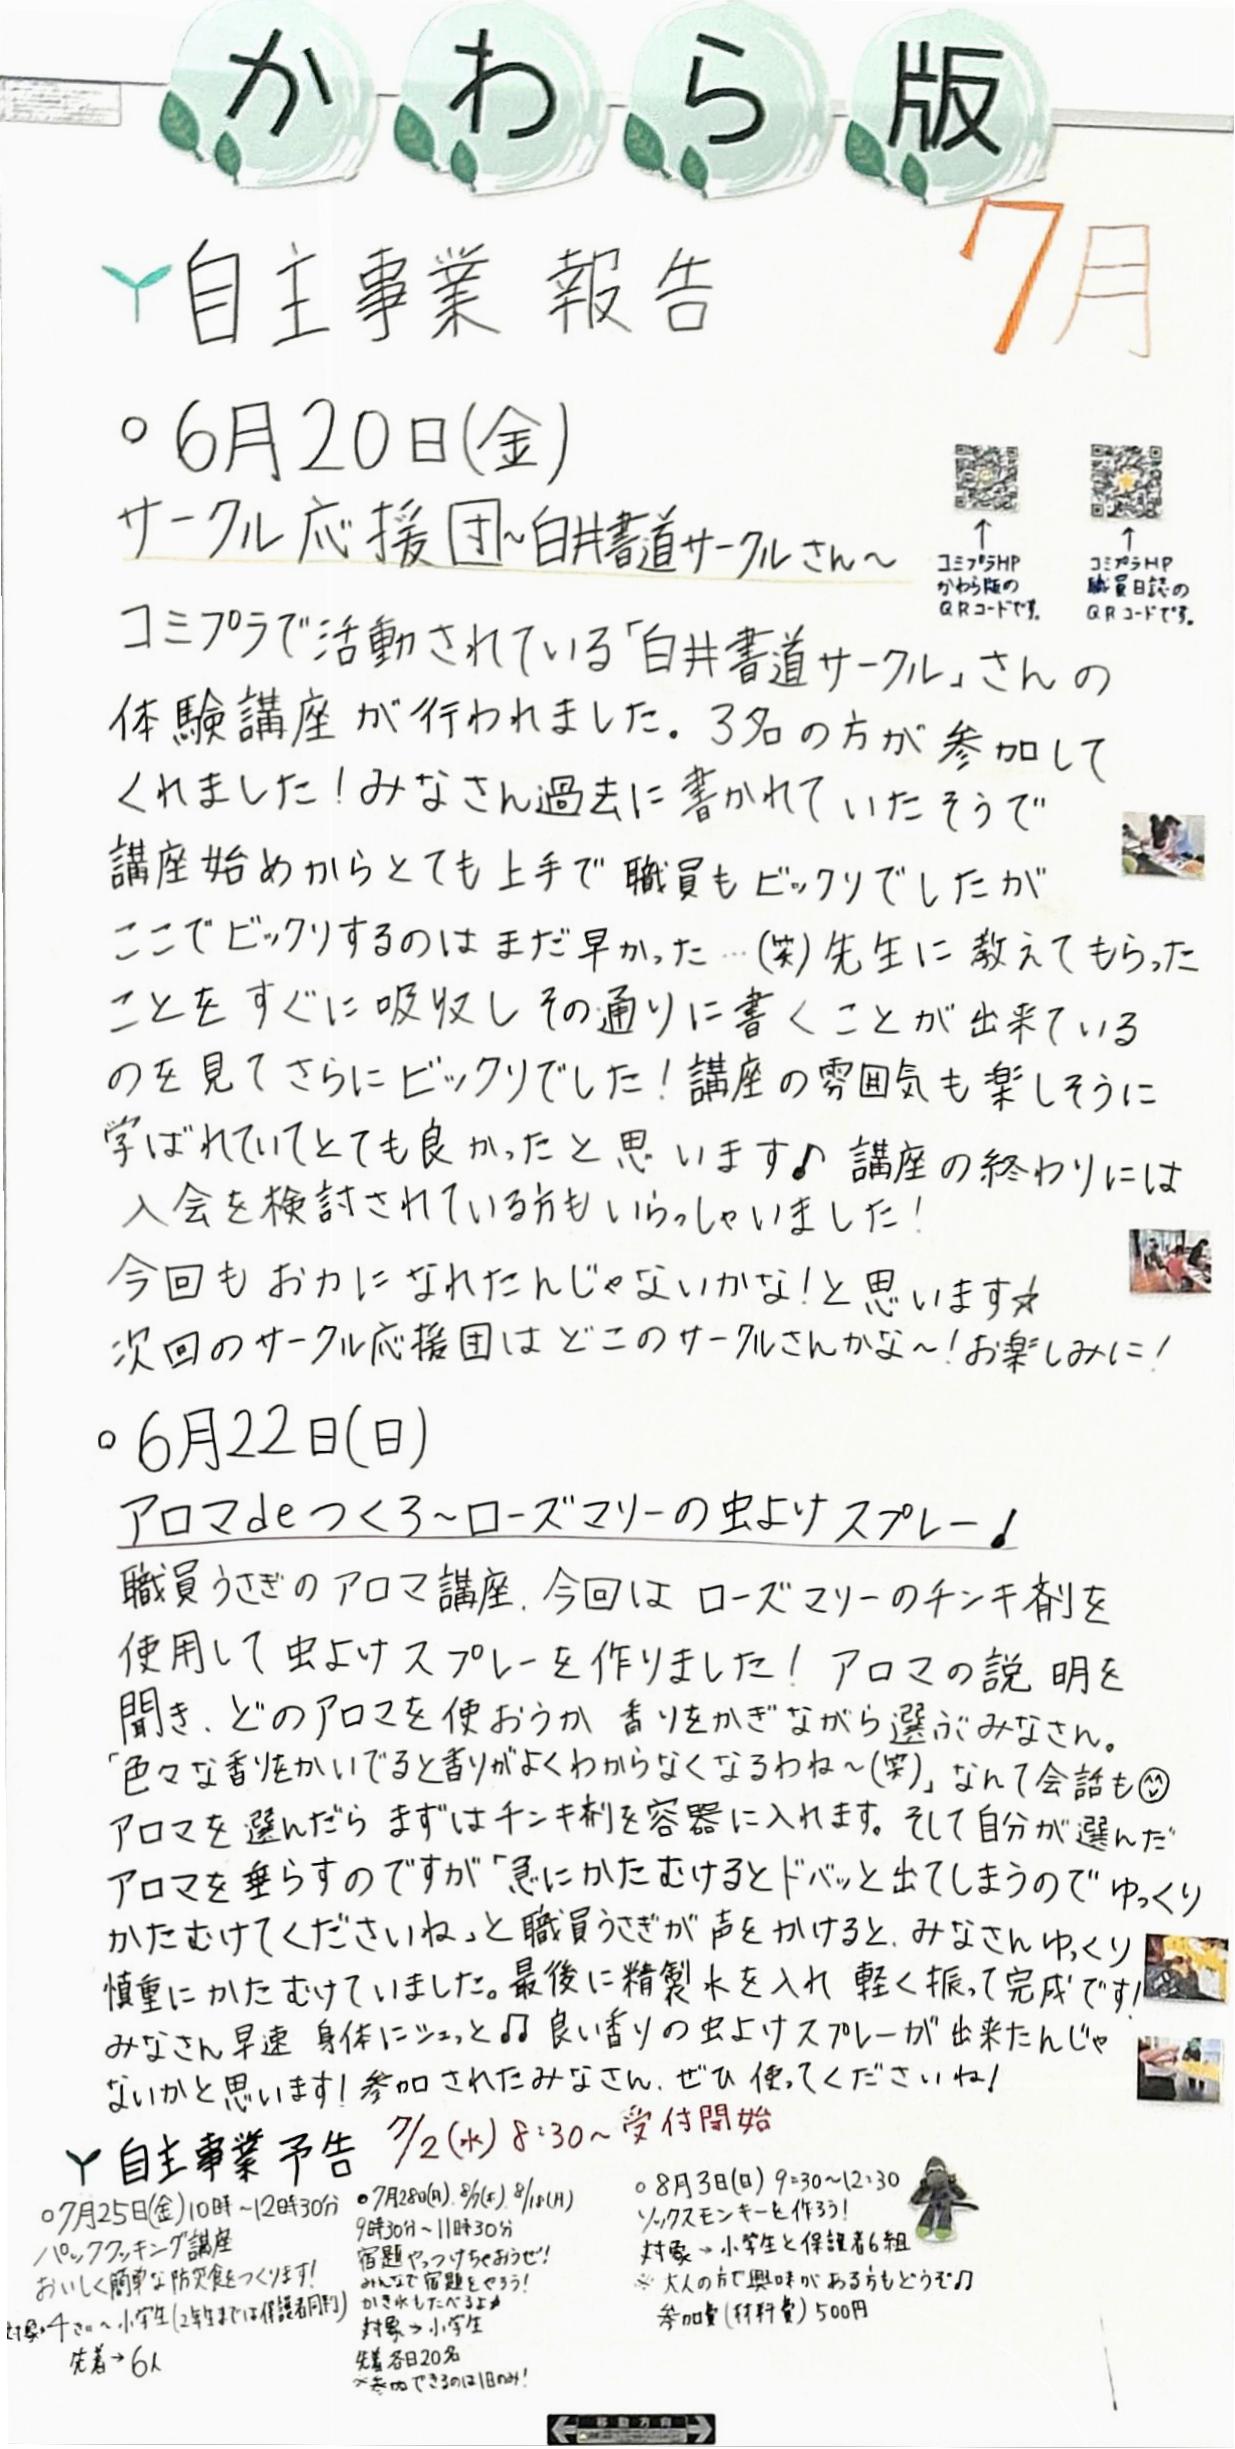 かわら版
7月
自主事業 報告
○6月20日(金)
サークル応援団～白井書道サークルさん～
↑
コミプラHP
かわら版の
QRコードです。
↑
コミプラHP
職員日誌の
QRコードです。
コミプラで活動されている「白井書道サークル」さんの
体験講座が行われました。3名の方が参加して
くれました!みなさん過去に書かれていたそうで
講座始めからとても上手で職員もビックリでしたが
ここでビックリするのはまだ早かった…(笑)先生に教えてもらった
ことをすぐに吸収しその通りに書くことが出来ている
のを見てさらにビックリでした!講座の雰囲気も楽しそうに
学ばれていてとても良かったと思います♪講座の終わりには
入会を検討されている方もいらっしゃいました!
今回もお力になれたんじゃないかな!と思います☆
次回のサークル応援団はどこのサークルさんかな～!お楽しみに!
○6月22日(日)
アロマdeつくろ～ローズマリーの虫よけスプレー♪
職員うさぎのアロマ講座、今回はローズマリーのチンキ剤を
使用して虫よけスプレーを作りました!アロマの説明を
聞き、どのアロマを使おうか香りをかぎながら選ぶみなさん。
「色々な香りをかいでると香りがよくわからなくなるわね～(笑)」なんて会話も
アロマを選んだらまずはチンキ剤を容器に入れます。そして自分が選んだ
アロマを垂らすのですが「急にかたむけるとドバッと出てしまうのでゆっくり
かたむけてくださいね」と職員うさぎが声をかけると、みなさんゆっくり
慎重にかたむけていました。最後に精製水を入れ軽く振って完成です!
みなさん早速身体にシュッと♫良い香りの虫よけスプレーが出来たんじゃ
ないかと思います!参加されたみなさん、ぜひ使ってくださいね!
自主事業予告 7/2(水)8:30～受付開始
○7月25日(金)10時～12時30分
パッククッキング講座
おいしく簡単な防災食をつくります!
対象→4さい～小学生(2年生までは保護者同伴)
先着→6人
●7月28日(月)、8/7(木)、8/18(月)
9時30分～11時30分
宿題やっつけちゃおうぜ!
みんなで宿題をやろう!
かき氷もたべるよ♪
対象→小学生
先着各日20名
※参加できるのは1日のみ!
○8月3日(日)9:30～12:30
ソックスモンキーを作ろう!
対象→小学生と保護者6組
※大人の方で興味がある方もどうぞ♫
参加費(材料費)500円
移動方向